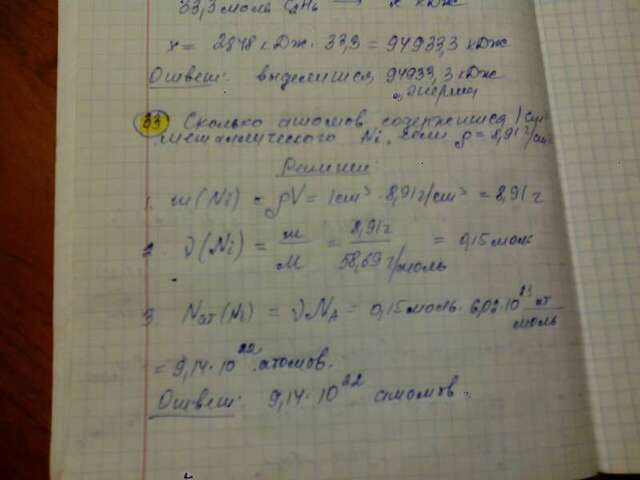 33,3 моль C₂H₆ → x кДж
x = 2848 кДж · 33,3 = 94933,3 кДж
Ответ: выделится 94933,3 кДж
энергии
33 Сколько атомов содержится 1 см³
металлического Ni, если ρ = 8,91 г/см³
Решение
1. m(Ni) = ρV = 1cm³ · 8,91г/cm³ = 8,91 г
2. ν(Ni) = m/M = 8,91г/58,69 г/моль = 0,15 моль
3. Nат(Ni) = νNA = 0,15 моль · 6,02·10²³ ат/моль
= 9,14·10²² атомов.
Ответ: 9,14·10²² атомов.